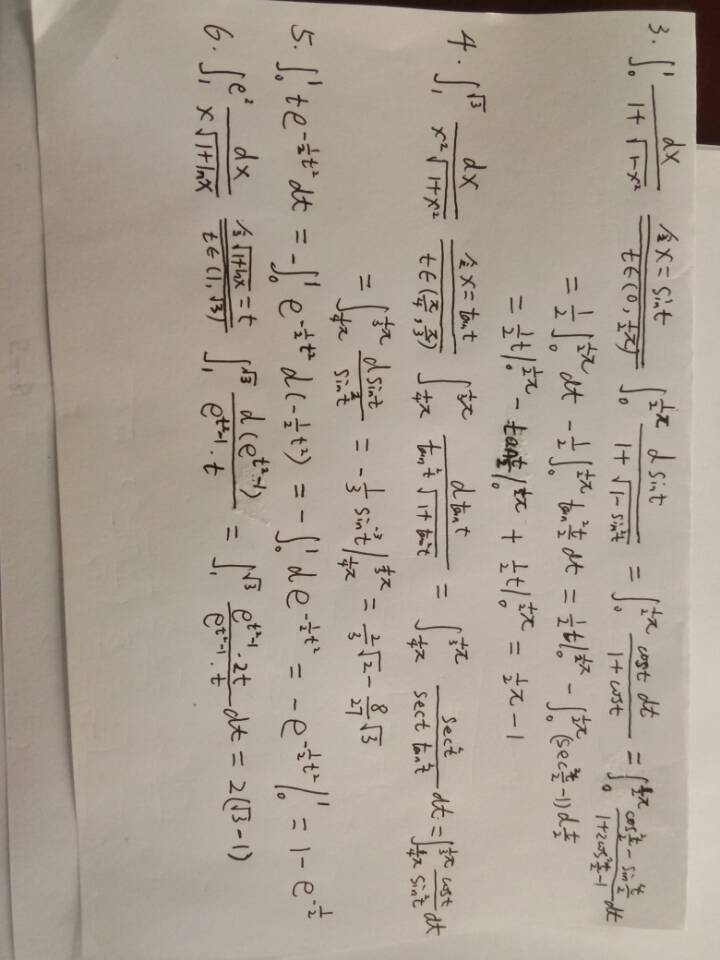 3. ∫₀¹ dx/(1+√(1-x²)) 令x=sint t∈(0,½π) ∫₀^{½π} dsint/(1+√(1-sin²t)) = ∫₀^{½π} cost dt/(1+cost) = ∫₀^{½π} (cos²t/2-sin²t/2)/(1+2cos²t/2-1) dt
= ½∫₀^{½π} dt - ½∫₀^{½π} tan²t/2 dt = ½t|₀^{½π} - ∫₀^{½π} (sec²t/2-1)d t/2
= ½t|₀^{½π} - tan t/2|₀^{½π} + ½t|₀^{½π} = ½π-1
4. ∫₁^{√3} dx/(x²√(1+x²)) 令x=tant t∈(π/4, π/3) ∫_{¼π}^{⅓π} dtant/(tan²t√(1+tan²t)) = ∫_{¼π}^{⅓π} sec²t/(sect tan²t) dt = ∫_{¼π}^{⅓π} cost/sin²t dt
= ∫_{¼π}^{⅓π} dsint/sin²t = -⅓sin⁻³t|_{¼π}^{⅓π} = ⅔√2 - 8/27√3
5. ∫₀¹ te^{-½t²} dt = -∫₀¹ e^{-½t²} d(-½t²) = -∫₀¹ de^{-½t²} = -e^{-½t²}|₀¹ = 1-e^{-½}
6. ∫₁^{e²} dx/(x√(1+lnx)) 令√(1+lnx)=t t∈(1,√3) ∫₁^{√3} d(e^{t²-1})/(e^{t²-1}·t) = ∫₁^{√3} (e^{t²-1}·2t)/(e^{t²-1}·t) dt = 2(√3-1)